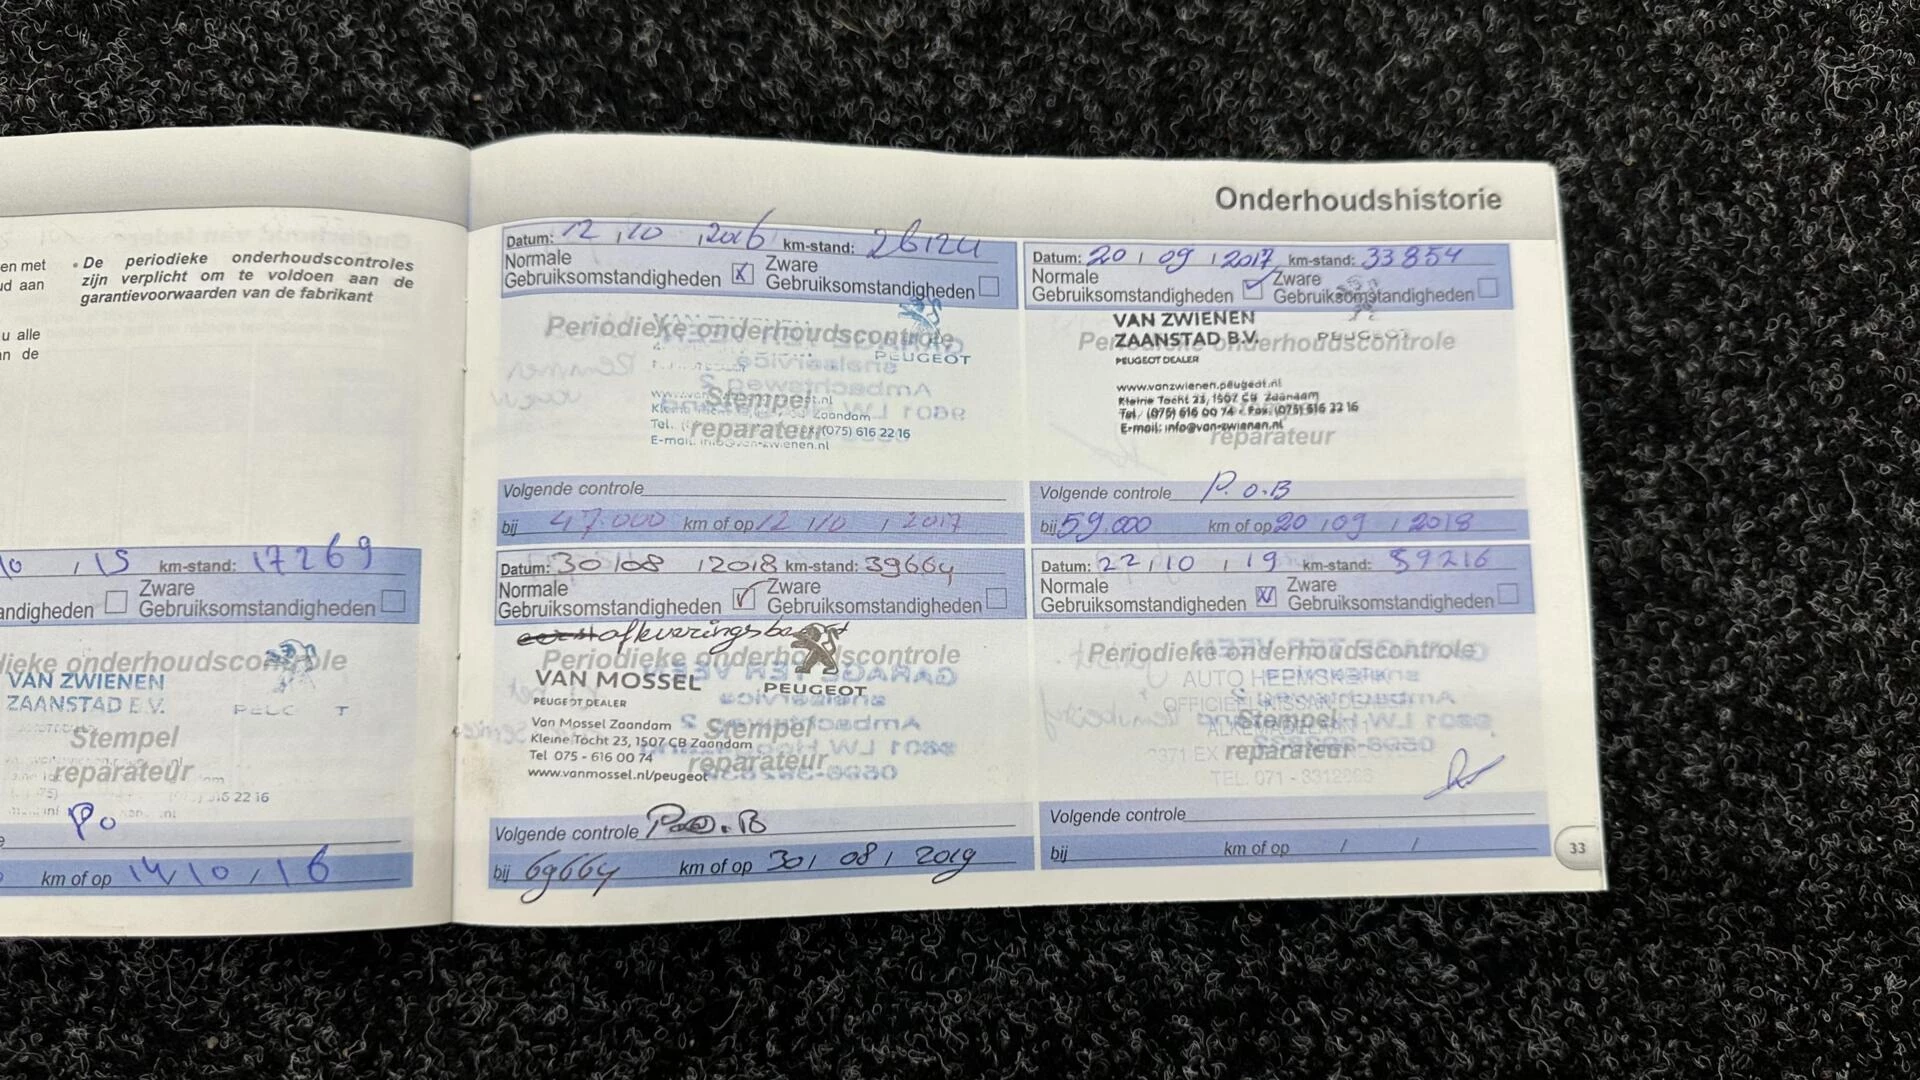 en met
ud aan
u alle
an de
• De periodieke onderhoudscontroles
zijn verplicht om te voldoen aan de
garantievoorwaarden van de fabrikant
10 / 15 km-stand: 17269
andigheden Zware
Gebruiksomstandigheden
dieke onderhoudscontrole
VAN ZWIENEN
ZAANSTAD B.V.
Stempel
reparateur
516 22 16
Po
km of op 14 / 10 / 16
Onderhoudshistorie
Datum: 12 / 10 / 2016 km-stand: 26124
Normale
Gebruiksomstandigheden X Zware
Gebruiksomstandigheden
Periodieke onderhoudscontrole
PEUGEOT
Stempel
Zaandam
reparateur (075) 616 22 16
Volgende controle
bij 47.000 km of op 12 / 10 / 2017
Datum: 20 / 09 / 2017 km-stand: 33854
Normale
Gebruiksomstandigheden Zware
Gebruiksomstandigheden
Periodieke onderhoudscontrole
VAN ZWIENEN
ZAANSTAD B.V. PEUGEOT
PEUGEOT DEALER
www.vanzwienen.peugeot.nl
Kleine Tocht 23, 1507 CB Zaandam
Tel. (075) 616 00 74 - Fax. (075) 616 22 16
E-mail: info@van-zwienen.nl
reparateur
Volgende controle P.O.B
bij 59.000 km of op 20 / 09 / 2018
Datum: 30 / 08 / 2018 km-stand: 39664
Normale
Gebruiksomstandigheden Zware
Gebruiksomstandigheden
Periodieke onderhoudscontrole
VAN MOSSEL PEUGEOT
PEUGEOT DEALER
Van Mossel Zaandam
Kleine Tocht 23, 1507 CB Zaandam
Tel 075 - 616 00 74
www.vanmossel.nl/peugeot
Stempel
reparateur
Volgende controle P.O.B
bij 69664 km of op 30 / 08 / 2019
Datum: 22 / 10 / 19 km-stand: 59216
Normale
Gebruiksomstandigheden X Zware
Gebruiksomstandigheden
Periodieke onderhoudscontrole
AUTO HEEMSKERK
Stempel
reparateur
TEL. 071 -
Volgende controle
bij km of op / /
33